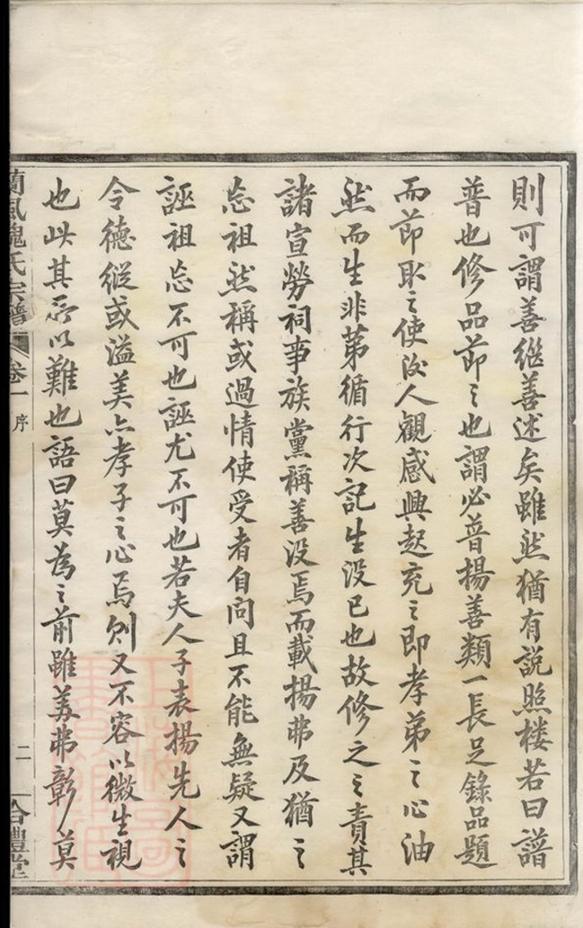 則可謂善繼善述矣雖然猶有説照楼若曰譜
普也修品節之也謂必普揚善類一長足錄品題
而節取之使後人觀感興起充之即孝弟之心油
然而生非第循行次記生没已也故修之之責其
諸宣勞祠事族黨稱善没焉而載揚弗及猶之
忘祖然稱或過情使受者自問且不能無疑又謂
誣祖忘不可也誣尤不可也若夫人子表揚先人之
令德縱或溢美亦孝子之心焉則又不容以微生視
也此其所以難也語曰莫為之前雖美弗彰莫
蘭風魏氏宗譜 卷一 序 二 合禮堂